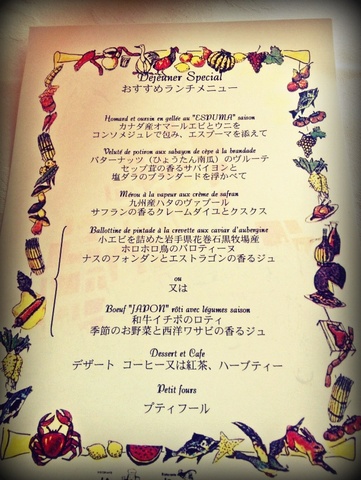 Déjeuner Special
おすすめランチメニュー
Homard et oursin en gelée au "ESPUMA" saison
カナダ産オマールエビとウニを
コンソメジュレで包み、エスプーマを添えて
Velouté de potiron aux sabayon de cèpe à la brandade
バターナッツ（ひょうたん南瓜）のヴルーテ
セップ茸の香るサバイヨンと
塩ダラのブランダードを浮かべて
Mérou à la vapeur aux crème de safran
九州産ハタのヴァプール
サフランの香るクレームダイユとクスクス
Ballottine de pintade à la crevette aux caviar d'aubergine
小エビを詰めた岩手県花巻石黒牧場産
ホロホロ鳥のバロティーヌ
ナスのフォンダンとエストラゴンの香るジュ
ou
又は
Bœuf "JAPON" rôti avec légumes saison
和牛イチボのロティ
季節のお野菜と西洋ワサビの香るジュ
Dessert et Cafe
デザート コーヒー又は紅茶、ハーブティー
Petit fours
プティフール